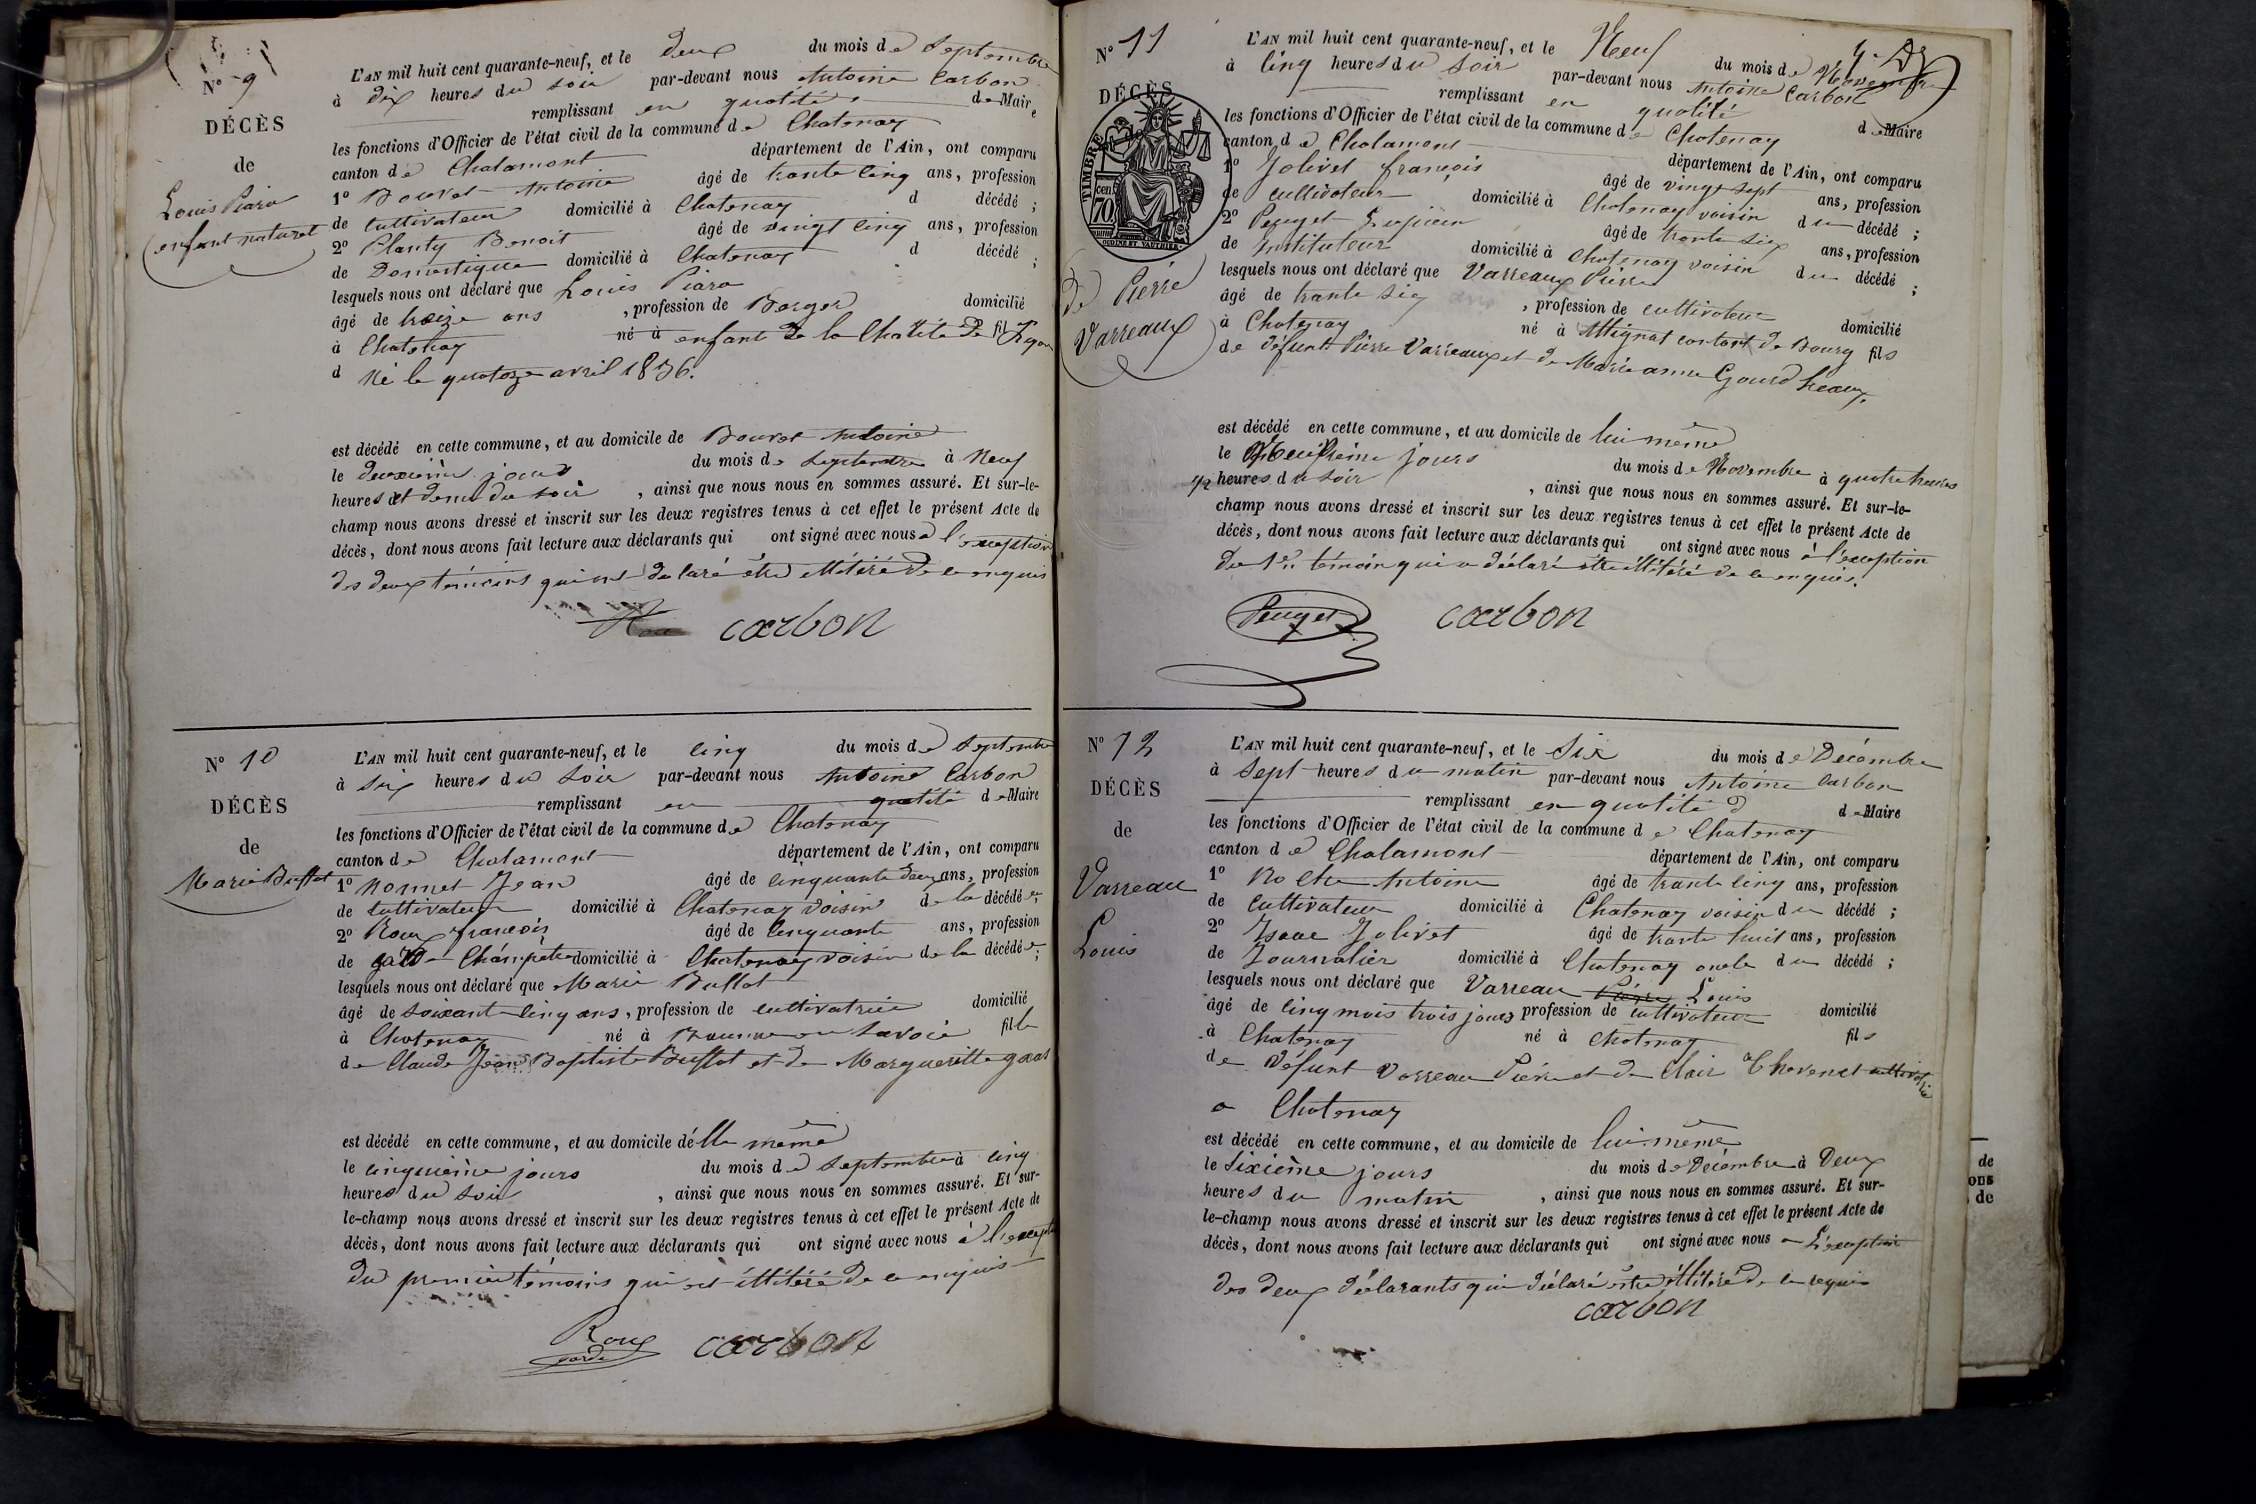 N° 9
DÉCÈS
de
Louis Piaro
enfant naturel
L'AN mil huit cent quarante-neuf, et le deux du mois de Septembre
à dix heures du soir par-devant nous Antoine Carbon
remplissant en qualité de Maire
les fonctions d'Officier de l'état civil de la commune de Chatenay
canton de Chalamont département de l'Ain, ont comparu
1° Bouvet Antoine âgé de trante cinq ans, profession
de cultivateur domicilié à Chatenay d décédé ;
2° Planty Benoit âgé de vingt cinq ans, profession
de Domestique domicilié à Chatenay d décédé ;
lesquels nous ont déclaré que Louis Piaro
âgé de treize ans , profession de Berger domicilié
à Chatenay né à enfant de la Charité de fil
d Né le quatorze avril 1836.
est décédé en cette commune, et au domicile de Bouvet Antoine
le deuxième jours du mois de Septembre à Neuf
heures et demi du soir , ainsi que nous nous en sommes assuré. Et sur-le-
champ nous avons dressé et inscrit sur les deux registres tenus à cet effet le présent Acte de
décès, dont nous avons fait lecture aux déclarants qui ont signé avec nous a l'exception
des deux témoins qui ont declaré être illitéré de ce enquis
carbon
N° 10
DÉCÈS
de
Marie Buffet
L'AN mil huit cent quarante-neuf, et le cinq du mois de Septembre
à six heures du soir par-devant nous Antoine Carbon
remplissant en qualité de Maire
les fonctions d'Officier de l'état civil de la commune de Chatenay
canton de Chalamont département de l'Ain, ont comparu
1° Monnet Jean âgé de cinquante deux ans, profession
de cultivateur domicilié à Chatenay voisin de la décédée ;
2° Roux françois âgé de cinquante ans, profession
de garde Champêtre domicilié à Chatenay voisin de la décédée ;
lesquels nous ont déclaré que Marie Buffet
âgé de soixante cinq ans, profession de cultivatrice domicilié
à Chatenay né à en Savoie fille
de Claude Jean Baptiste Buffet et de Margueritte
est décédé en cette commune, et au domicile d'elle même
le cinquième jours du mois de Septembre à cinq
heures du soir , ainsi que nous nous en sommes assuré. Et sur-
le-champ nous avons dressé et inscrit sur les deux registres tenus à cet effet le présent Acte de
décès, dont nous avons fait lecture aux déclarants qui ont signé avec nous à l'exception
du premier témoins qui est illitéré de ce enquis
Roux carbon
garde
N° 11
DÉCÈS
TIMBRE
70
de Pierre
Varreaux
L'AN mil huit cent quarante-neuf, et le Neuf du mois de Novembre
à cinq heures du soir par-devant nous Antoine Carbon
remplissant en qualité de Maire
les fonctions d'Officier de l'état civil de la commune de Chatenay
canton de Chalamont département de l'Ain, ont comparu
1° Jolivet françois âgé de vingt sept ans, profession
de cultivateur domicilié à Chatenay voisin du décédé ;
2° Peuget âgé de trante six ans, profession
de Instituteur domicilié à Chatenay voisin du décédé ;
lesquels nous ont déclaré que Varreaux Pierre
âgé de trante six , profession de cultivateur domicilié
à Chatenay né à Attignat canton de Bourg fils
de défunt Pierre Varreaux et de Marie anne
est décédé en cette commune, et au domicile de lui même
le Neuvième jours du mois de Novembre à quatre heures
1/2 heures du soir , ainsi que nous nous en sommes assuré. Et sur-le-
champ nous avons dressé et inscrit sur les deux registres tenus à cet effet le présent Acte de
décès, dont nous avons fait lecture aux déclarants qui ont signé avec nous à l'exception
du 1er témoin qui a déclaré être illitéré de ce enquis.
Peuget carbon
N° 12
DÉCÈS
de
Varreau
Louis
L'AN mil huit cent quarante-neuf, et le Six du mois de Décembre
à sept heures du matin par-devant nous Antoine Carbon
remplissant en qualité de Maire
les fonctions d'Officier de l'état civil de la commune de Chatenay
canton de Chalamont département de l'Ain, ont comparu
1° Roche Antoine âgé de trante cinq ans, profession
de cultivateur domicilié à Chatenay voisin du décédé ;
2° Isaac Jolivet âgé de trante huit ans, profession
de Journalier domicilié à Chatenay oncle du décédé ;
lesquels nous ont déclaré que Varreau Pierre Louis
âgé de cinq mois trois jours profession de cultivateur domicilié
à Chatenay né à Chatenay fils
de Défunt Varreau Pierre et de Clair Thevenet cultivatrice
a Chatenay
est décédé en cette commune, et au domicile de lui même
le Sixième jours du mois de Décembre à Deux
heures du matin , ainsi que nous nous en sommes assuré. Et sur-
le-champ nous avons dressé et inscrit sur les deux registres tenus à cet effet le présent Acte de
décès, dont nous avons fait lecture aux déclarants qui ont signé avec nous a L'exception
des deux déclarants qui déclaré être illitéré de ce requis
carbon
de
ons
de